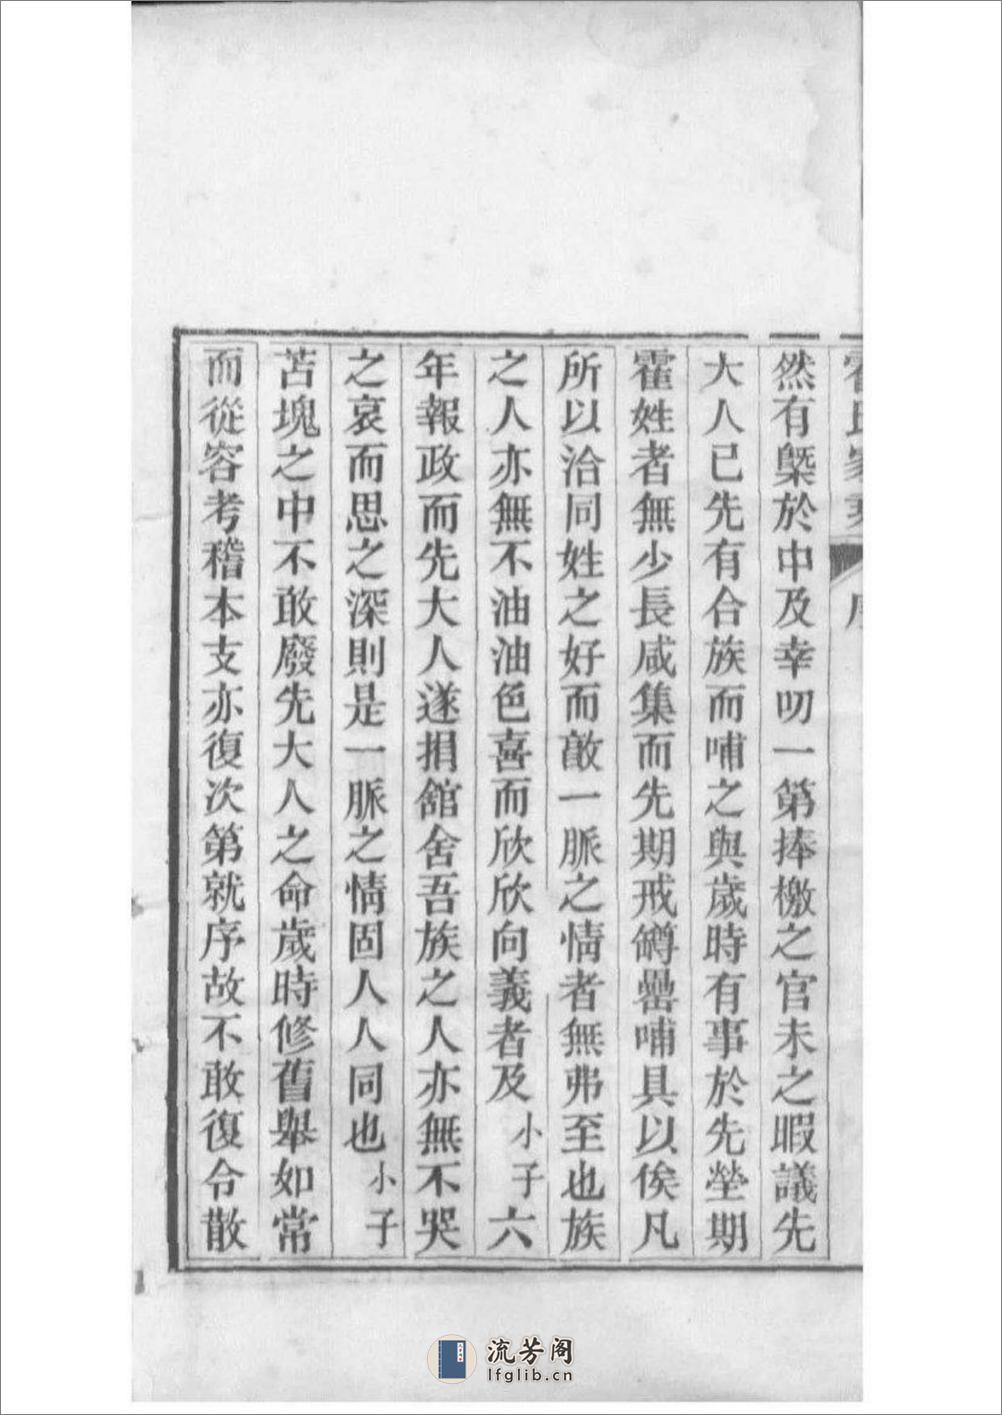 霍氏家乘 序
然有槩於中及幸叨一第捧檄之官未之暇議先
大人已先有合族而哺之與歲時有事於先塋期
霍姓者無少長咸集而先期戒罇罍哺具以俟凡
所以洽同姓之好而敵一脈之情者無弗至也族
之人亦無不油油色喜而欣欣向義者及小子六
年報政而先大人遂捐舘舍吾族之人亦無不哭
之哀而思之深則是一脈之情固人人同也小子
苫塊之中不敢廢先大人之命歲時修舊舉如常
而從容考稽本支亦復次第就序故不敢復令散
流芳阁
lfglib.cn